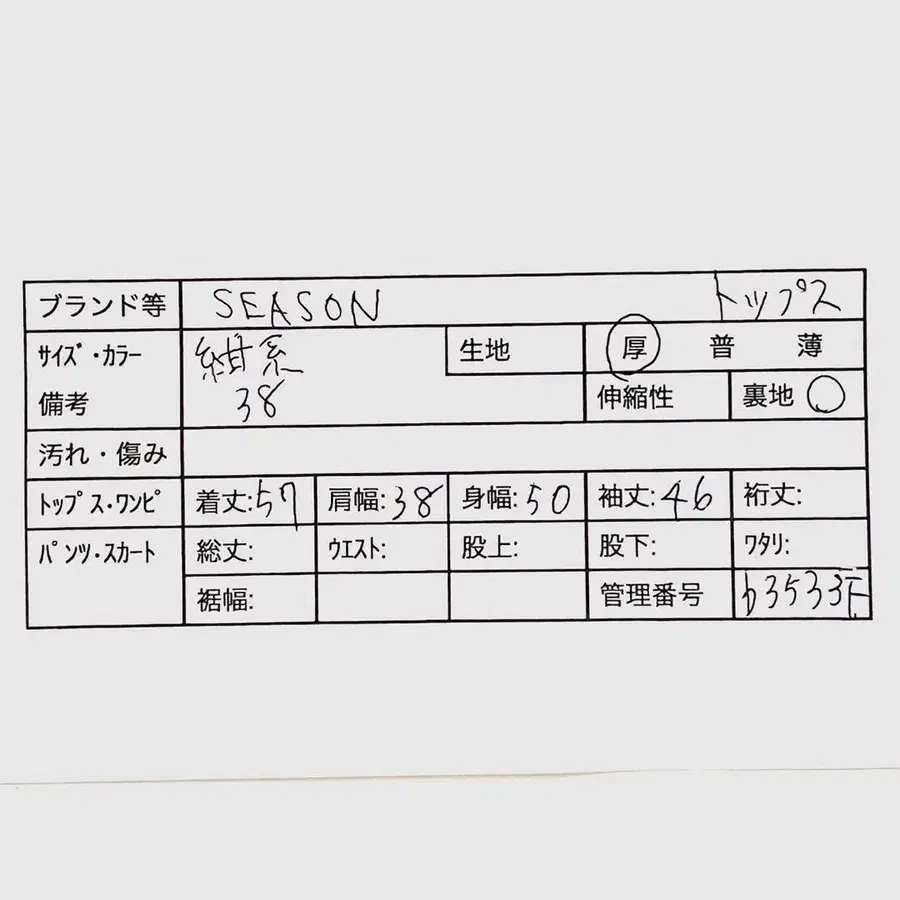 ブランド等 SEASON トップス
サイズ・カラー 紺系 生地 厚 普 薄
備考 38 伸縮性 裏地 ○
汚れ・傷み
トップス・ワンピ 着丈:57 肩幅:38 身幅:50 袖丈:46 裄丈:
パンツ・スカート 総丈: ウエスト: 股上: 股下: ワタリ:
裾幅: 管理番号 b3533F